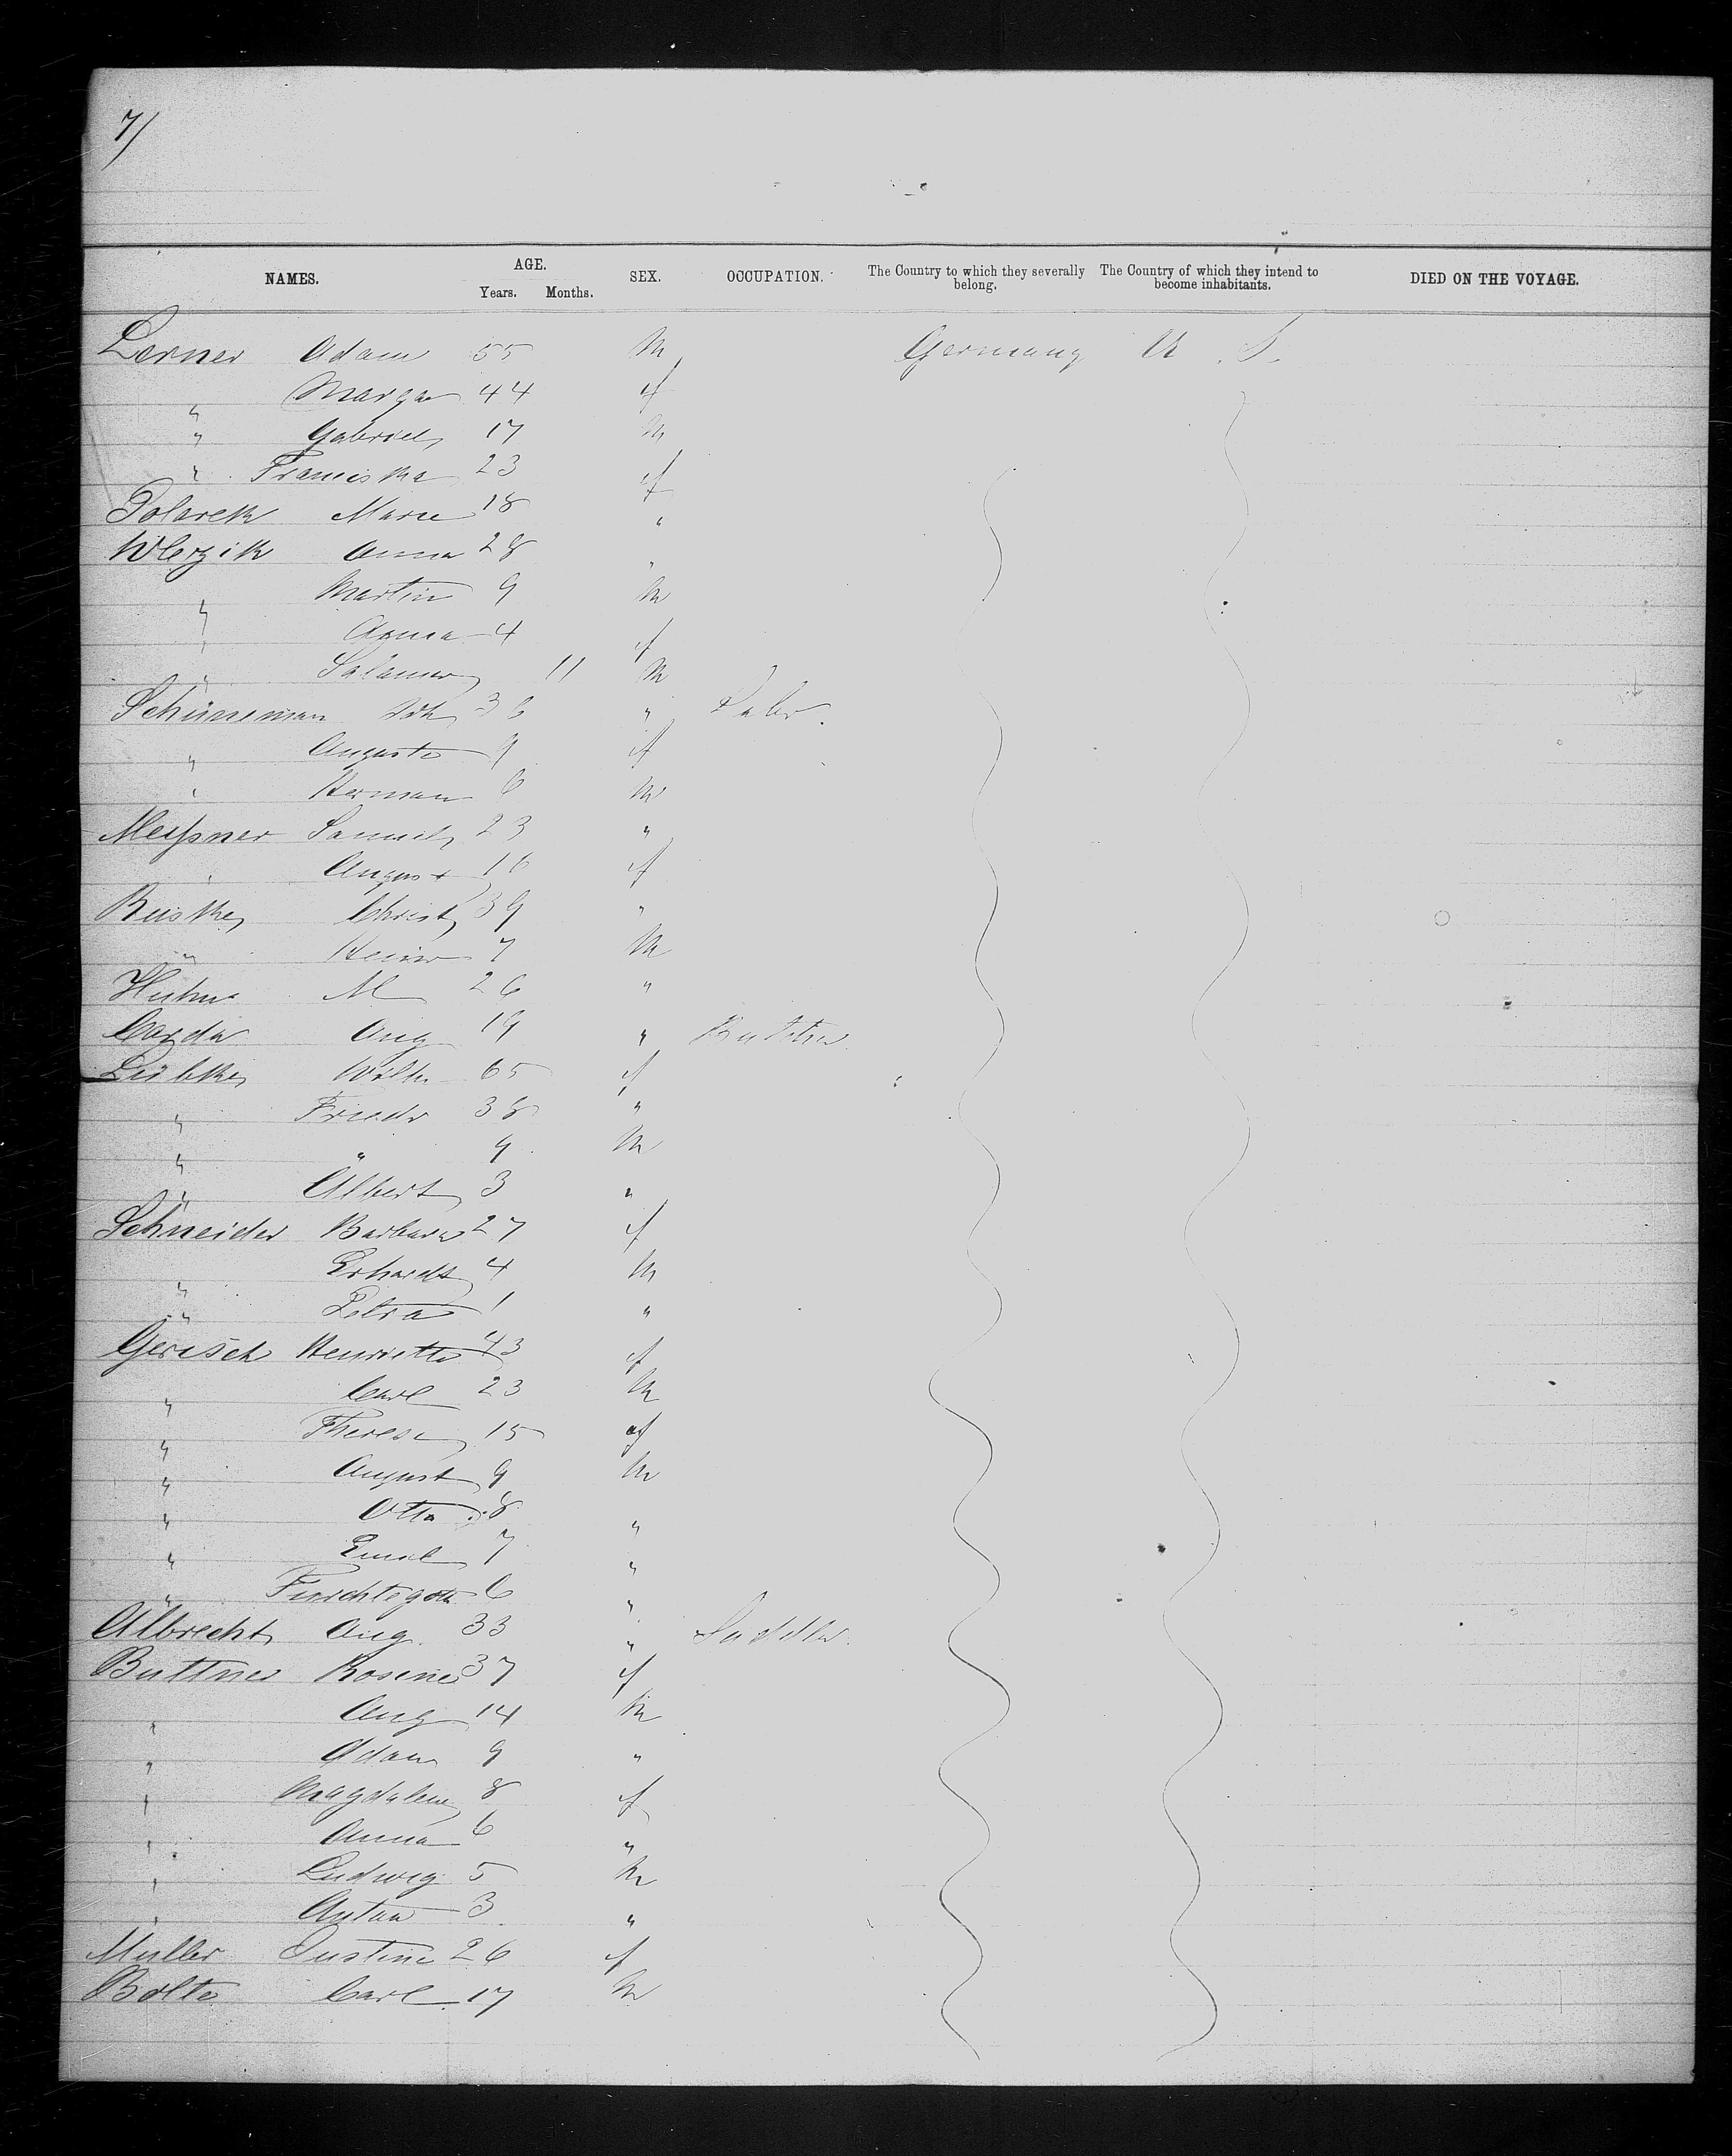 7/
NAMES. AGE. Years. Months. SEX. OCCUPATION. The Country to which they severally belong. The Country of which they intend to become inhabitants. DIED ON THE VOYAGE.
Lerner Adam 55 M Germany U. S.
" Margar 44 f
" Gabriel 17 M
" Franciska 23 f
Polarek Marie 18 "
Wlezik Anna 28 "
" Martin 9 M
" Anna 4 f
" 11 M
Schüneman Joh 36 " Labr.
" Auguste 9 f
" Herman 6 M
Meißner Samuel 23 "
" August 16 f
Christ 39 "
" Heinr 7 M
Huhn M 26 "
Aug 19 "
Lübke Wilh 65 f
" Friedr 38 "
" " 9 M
" Albert 3 "
Schneider Barbara 27 f
" Erhardt 4 M
" Petra 1 "
Gerisch Henriette 43 f
" Carl 23 M
" Therese 15 f
" August 9 M
" Otto 8 "
" Emil 7 "
" Furchtegott 6 "
Albrecht Aug. 33 " Saddler.
Buttner Rosine 37 f
" Aug 14 M
" Adam 9 "
" Magdalene 8 f
" Anna 6 "
" Ludwig 5 M
" Anton 3 "
Muller Justine 26 f
Bolte Carl 17 M